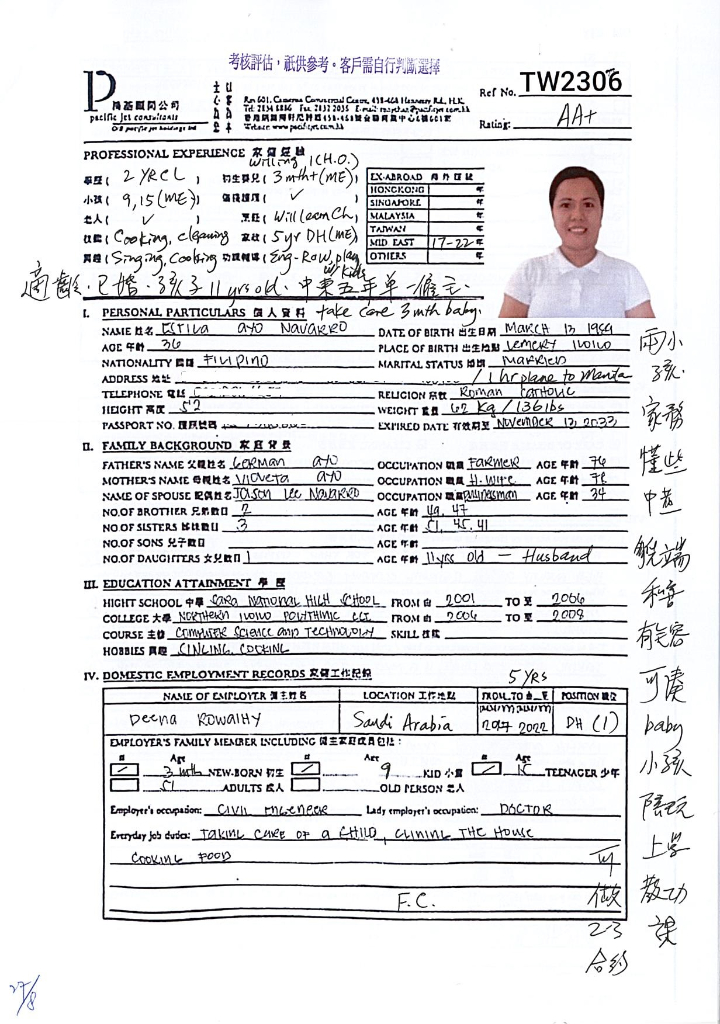 考核評估，祇供參考。客戶需自行判斷選擇
栢基顧問公司
pacific jet consultants
Ref No. TW2306
Rating: AA+
PROFESSIONAL EXPERIENCE 家傭經驗
willing 1 (H.O.)
學歷 ( 2 YRCL ) 初生嬰兒 ( 3 mth+(ME)
小孩 ( 9, 15 (ME) ) ✓
老人 ( ✓ ) 烹飪 ( Will learn Ch )
技能 ( Cooking, cleaning ) 家務 ( 5yr DH (ME)
興趣 ( Singing, Cooking ) 功課輔導 ( Eng-Row, play
w/ kids
EX-ABROAD 海外經驗
HONGKONG 年
SINGAPORE 年
MALAYSIA 年
TAIWAN 年
MID EAST 17-22 年
OTHERS 年
適齡．已婚．孩子 11 yrs old．中東五年单一僱主．
take care 3 mth baby.
I. PERSONAL PARTICULARS 個人資料
NAME 姓名 AYO NAVARRO DATE OF BIRTH 出生日期 MARCH 13 1989
AGE 年齡 36 PLACE OF BIRTH 出生地點 LEMERY ILOILO
NATIONALITY 國籍 FILIPINO MARITAL STATUS 婚姻 MARRIED
ADDRESS 地址 / 1 hr plane to Manila
TELEPHONE 電話 RELIGION 宗教 ROMAN CATHOLIC
HEIGHT 高度 5'2 WEIGHT 體重 62 Kg / 136 lbs
PASSPORT NO. 護照號碼 EXPIRED DATE 有效期至 NOVEMBER 12, 2033
II. FAMILY BACKGROUND 家庭背景
FATHER'S NAME 父親姓名 GERMAN AYO OCCUPATION 職業 FARMER AGE 年齡 76
MOTHER'S NAME 母親姓名 VIOLETA AYO OCCUPATION 職業 H.WIFE AGE 年齡
NAME OF SPOUSE 配偶姓名 JASON LEE NAVARRO OCCUPATION 職業 AGE 年齡 34
NO.OF BROTHER 兄弟數目 2 AGE 年齡 49, 47
NO.OF SISTERS 姊妹數目 3 AGE 年齡 51, 45, 41
NO.OF SONS 兒子數目 AGE 年齡
NO.OF DAUGHTERS 女兒數目 1 AGE 年齡 11yrs old — Husband
III. EDUCATION ATTAINMENT 學歷
HIGHT SCHOOL 中學 SARA NATIONAL HIGH SCHOOL FROM 由 2001 TO 至 2006
COLLEGE 大學 NORTHERN ILOILO FROM 由 2006 TO 至 2008
COURSE 主修 COMPUTER SCIENCE AND TECHNOLOGY SKILL 技能
HOBBIES 興趣 SINGING, COOKING
IV. DOMESTIC EMPLOYMENT RECORDS 家傭工作記錄
5 YRS
NAME OF EMPLOYER 僱主姓名 LOCATION 工作地點 FROM..TO 由...至 POSITION 職位
Deena Rowaihy Saudi Arabia 2017 2022 DH (1)
EMPLOYER'S FAMILY MEMBER INCLUDING 僱主家庭成員包括：
# Age # Age # Age
3 mth NEW-BORN 初生 9 KID 小童 15 TEENAGER 少年
51 ADULTS 成人 OLD PERSON 老人
Employer's occupation: CIVIL ENGENEER Lady employer's occupation: DOCTOR
Everyday job duties: TAKING CARE OF A CHILD, CLINING THE HOUSE
COOKING FOOD
F.C.
可
做
2-3
合約
兩小
孩．
家務
懂些
中煮
貌端
和善
有笑容
可湊
baby
小孩
陪玩
上学
教功
課
27/8